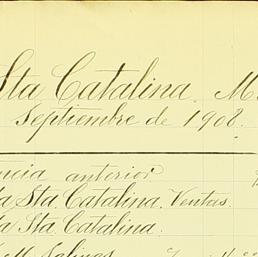 Sta Catalina. M
Septiembre de 1908.
ncia anterior
la Sta Catalina. Ventas.
la Sta Catalina.
M. Salinas